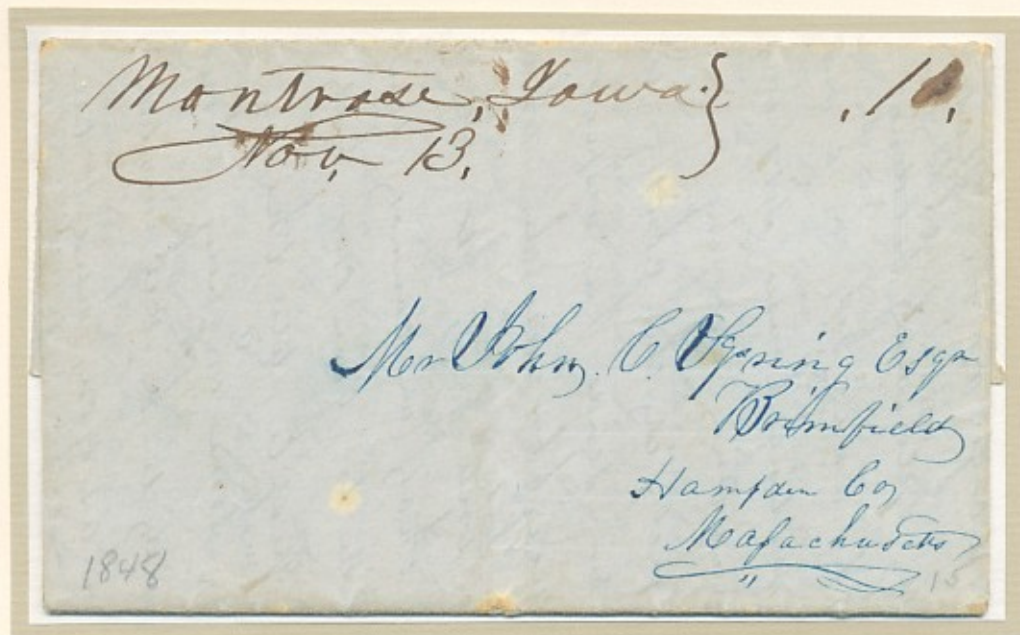 Montrose, Iowa }
Nov, 13,
.10.
Mr John. C. Spring Esqr
Brimfield
Hampden Co,
Massachusetts
"
1848
15